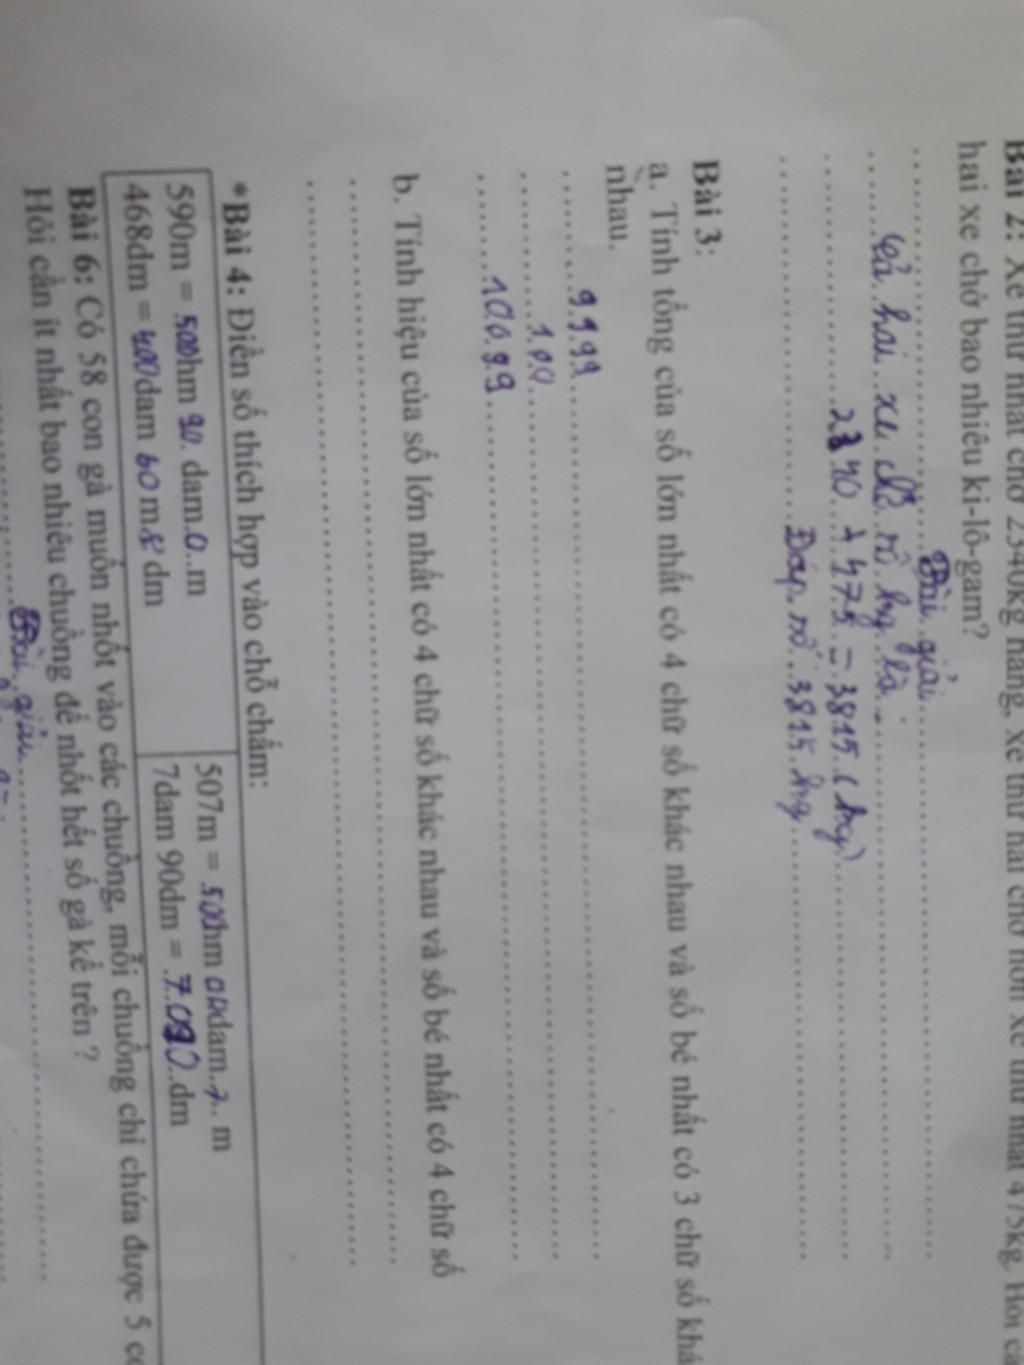 Bài 2: Xe thứ nhất chở 2340kg hàng, xe thứ hai chở hơn xe thứ nhất 475kg. Hỏi cả
hai xe chở bao nhiêu ki-lô-gam?
Bài giải
Cả hai xe chở số kg là:
2340 + 475 = 3815 (kg)
Đáp số 3815 kg
Bài 3:
a. Tính tổng của số lớn nhất có 4 chữ số khác nhau và số bé nhất có 3 chữ số khá
nhau.
9999
100
10099
b. Tính hiệu của số lớn nhất có 4 chữ số khác nhau và số bé nhất có 4 chữ số
*Bài 4: Điền số thích hợp vào chỗ chấm:
590m = 500hm 90 dam 0 m
468dm = 400dam 60 m 8 dm
507m = 500hm 00dam 7 m
7dam 90dm = 7090 dm
Bài 6: Có 58 con gà muốn nhốt vào các chuồng, mỗi chuồng chỉ chứa được 5 co
Hỏi cần ít nhất bao nhiêu chuồng để nhốt hết số gà kể trên ?
Bài giải